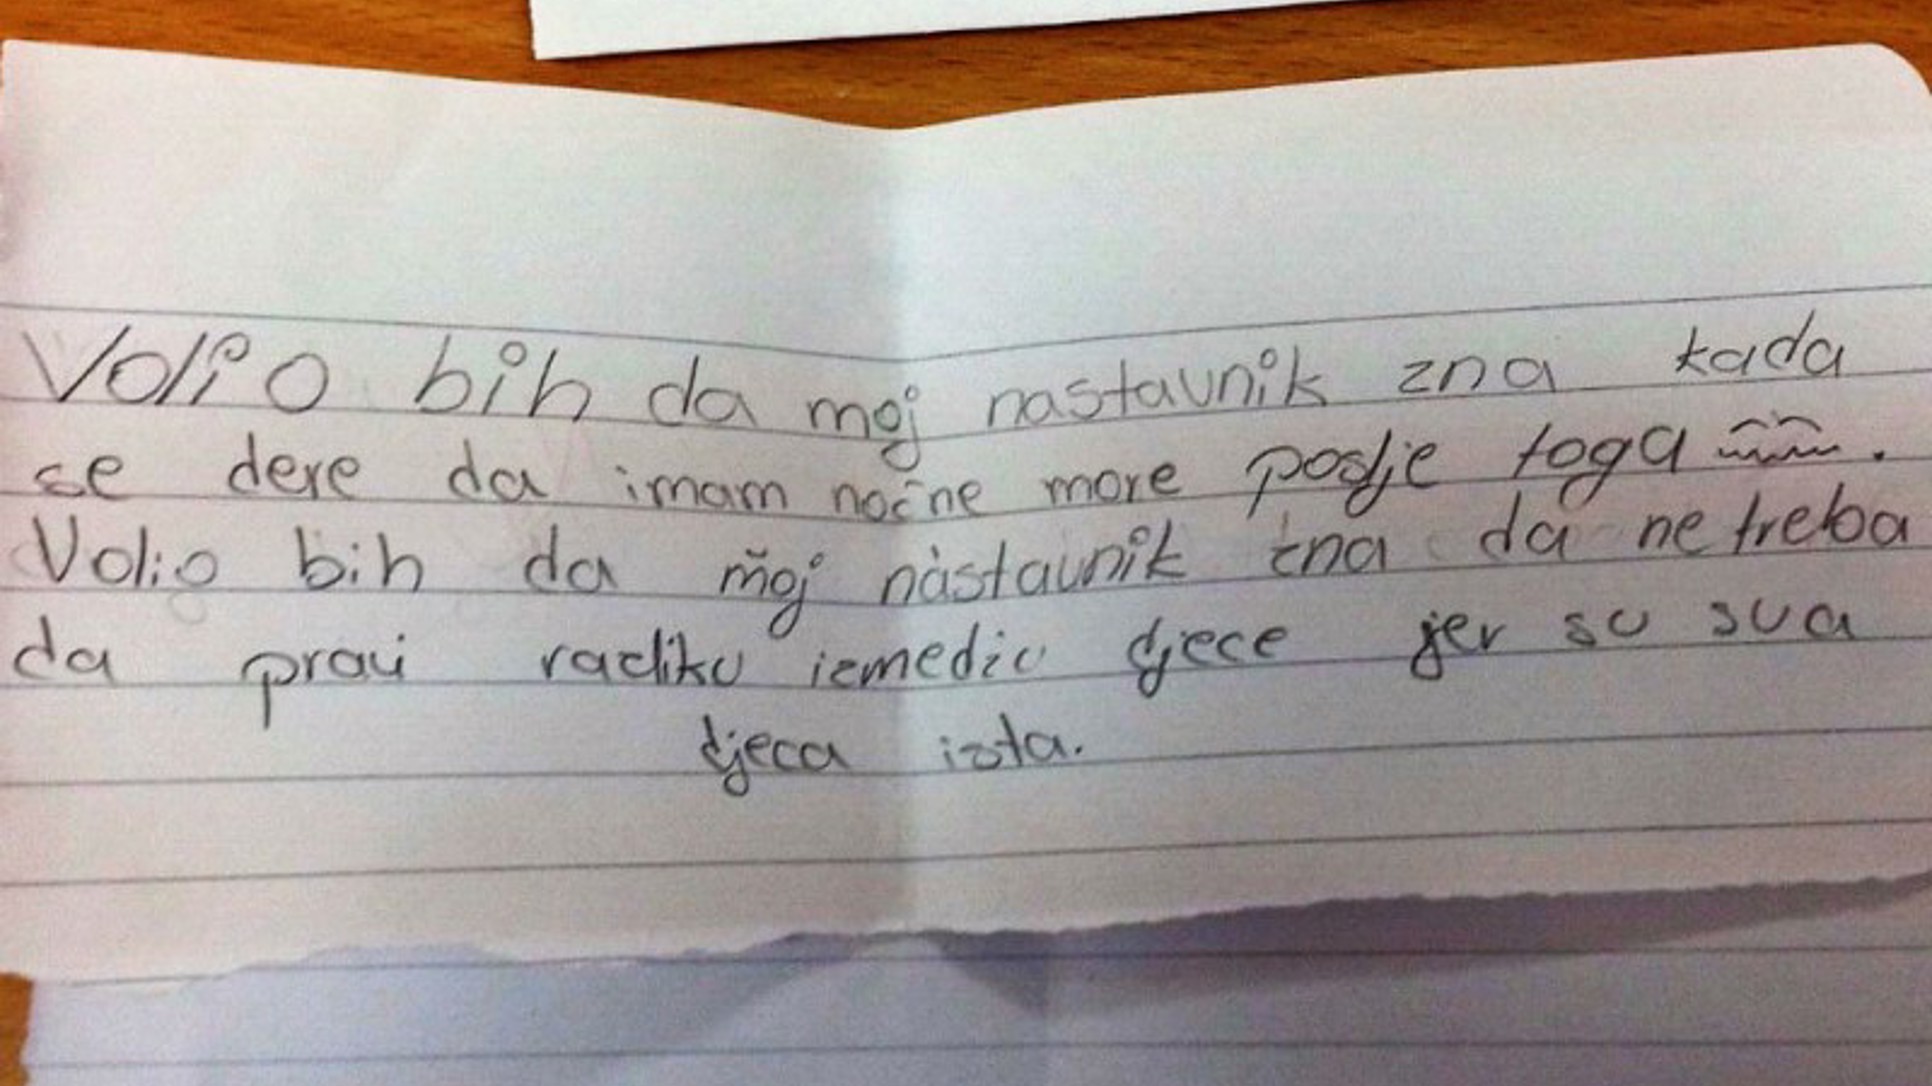 Volio bih da moj nastavnik zna kada
se dere da imam noćne more poslje toga.
Volio bih da moj nastavnik zna da ne treba
da pravi radliku izmedźu djece jer su sva
djeca ista.